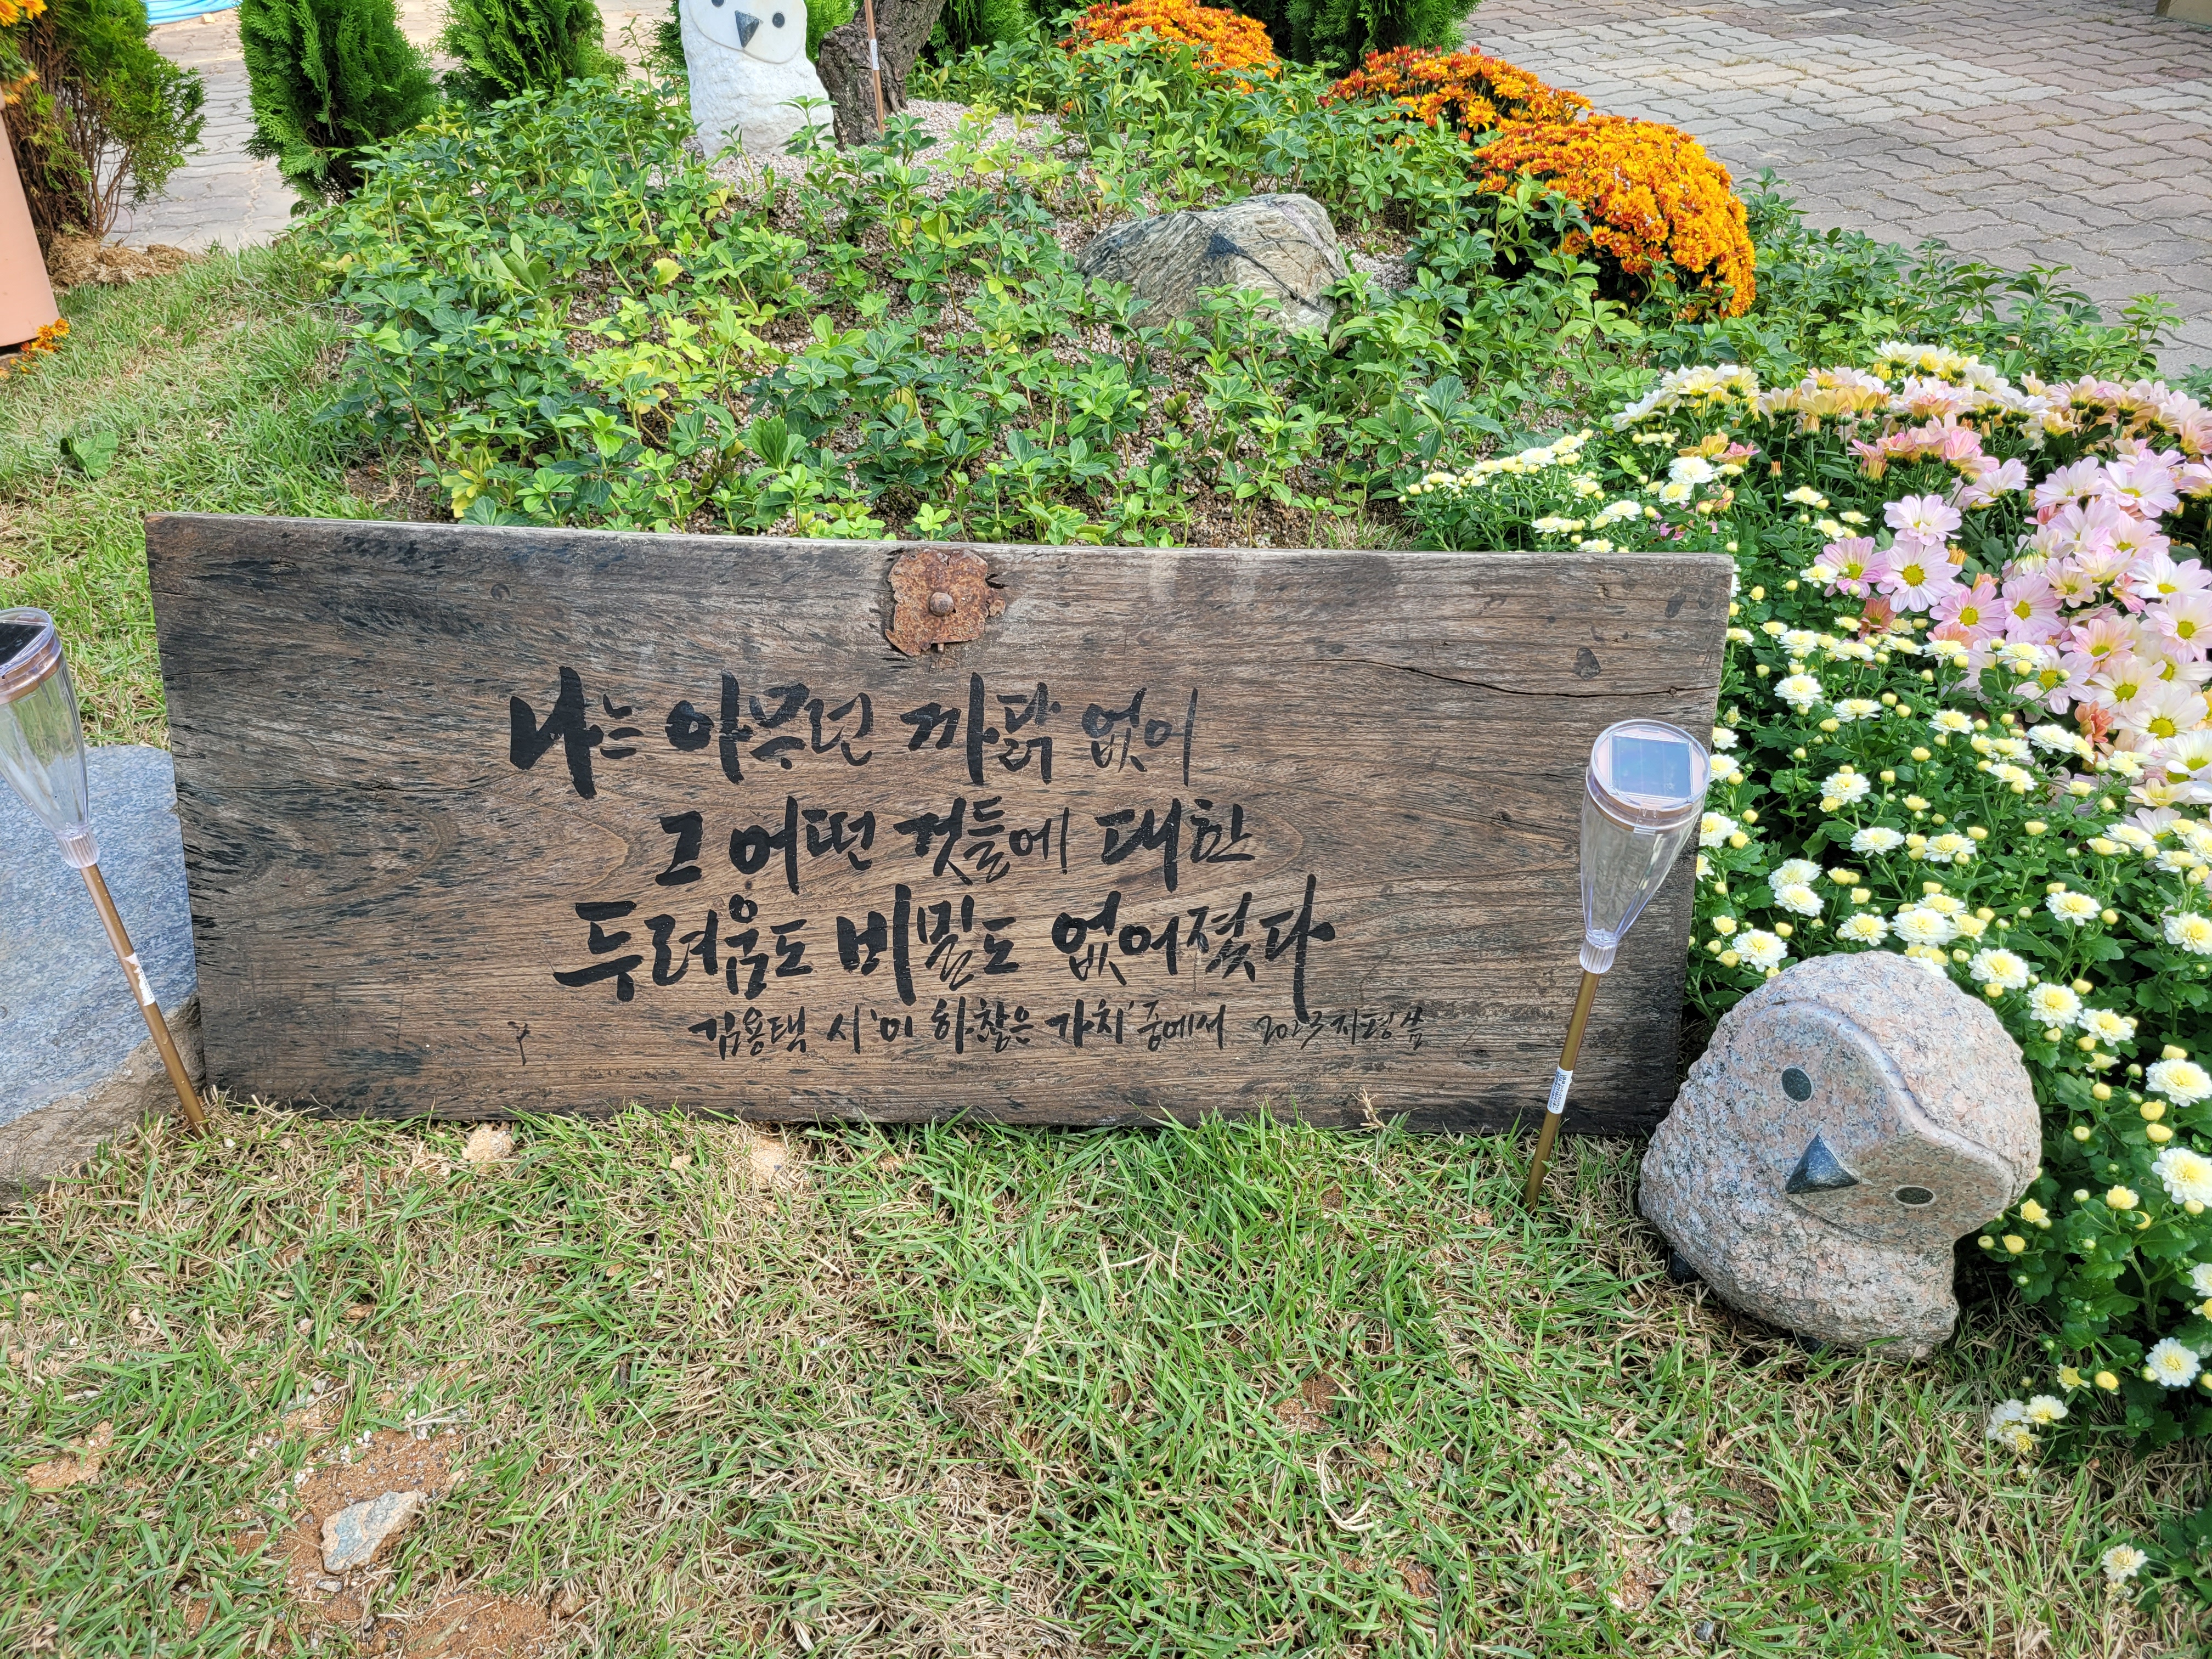 나는 아무런 까닭 없이
그 어떤 것들에 대한
두려움도 비밀도 없어졌다
김용택 시 '이 하찮은 가치' 중에서 2023 지평 씀